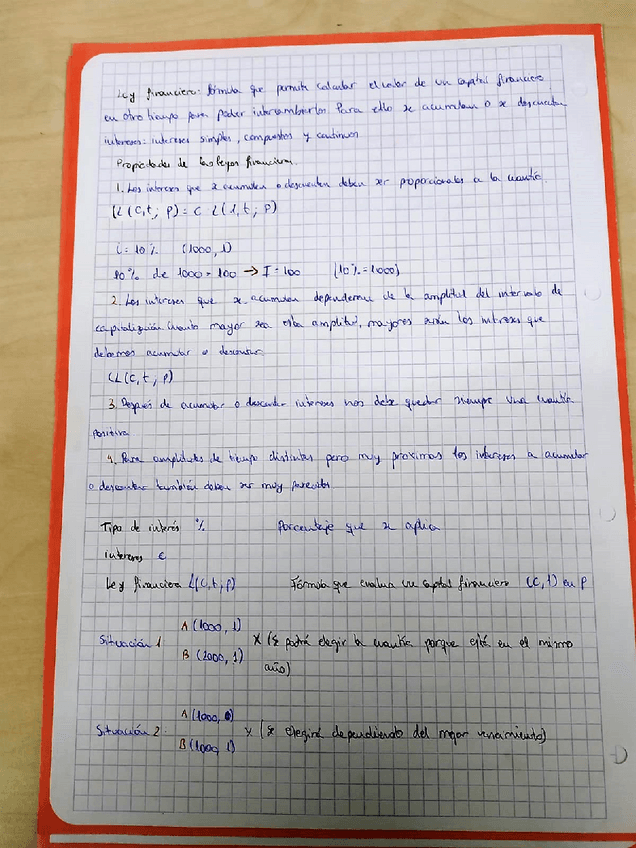 Ley financiera: fórmula que permite calcular el valor de un capital financiero
en otro tiempo para poder intercambiarlos Para ello se acumulan o se descuentan
intereses: intereses simples, compuestos y continuos
Propiedades de las leyes financieras.
1. Los intereses que se acumulen o descuenten deben ser proporcionales a la cuantía.
L(C,t; p) = C L(1,t; p)
i = 10% (1000, 1)
10% de 1000 = 100 → I = 100 (10% = 1000)
2. Los intereses que se acumulan dependerán de la amplitud del intervalo de
capitalización. Cuanto mayor sea esta amplitud, mayores serán los intereses que
debemos acumular o descontar
L(C,t; p)
3. Después de acumular o descontar intereses nos debe quedar siempre una cuantía
positiva
4. Para amplitudes de tiempo distintas pero muy próximas los intereses a acumular
o descontar también deben ser muy parecidos
Tipo de interés % Porcentaje que se aplica
intereses €
Ley financiera L(C,t; p) Fórmula que evalua un capital financiero (C, 1) en P
A (1000, 1)
Situación 1 X (Se podrá elegir la cuantía porque está en el mismo
B (2000, 1) año)
A (1000, 0)
Situación 2 X (se elegirá dependiendo del mejor vencimiento)
B (1000, 1)